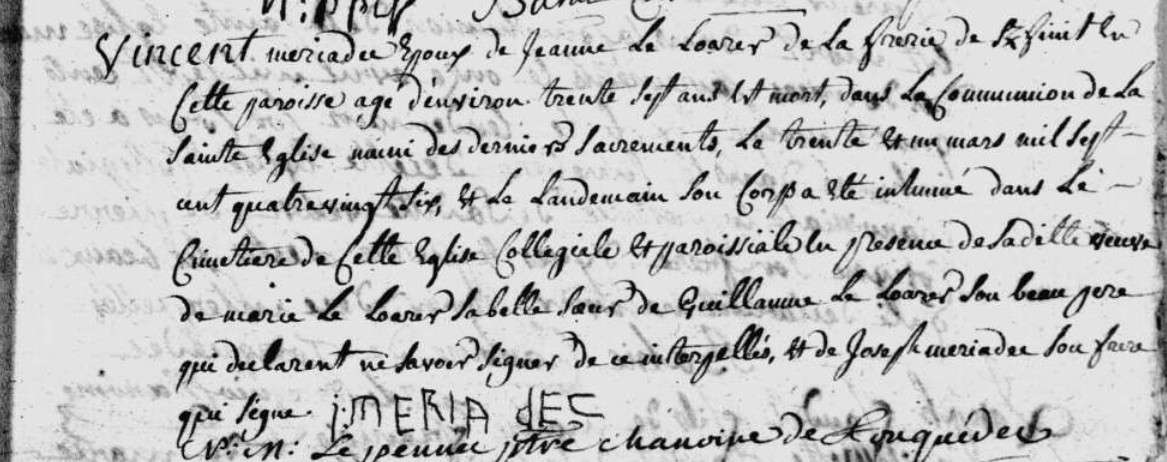 Vincent meriadec Epoux de Jeanne Le Loarer de La frerie de St finit En
Cette paroisse agé d'environ trente sept ans Est mort, dans La Communion de La
Sainte Eglise muni des derniers Sacrements, Le trente Et un mars mil sept
cent quatrevingt six, Et Le Landemain Son Corp a Eté inhumé dans Le
Cimetiere de Cette Eglise Collegiale Et paroissiale En presence de Sa ditte veuve
de marie Le Loarer Sa belle Sœur de Guillaume Le Loarer Son beau pere
qui declarent ne Savoir Signer de ce interpellés, Et de Joseph meriadec Son frere
qui Signe. j: MERIADEC
Le pennec ptre chanoine de Rouquédec